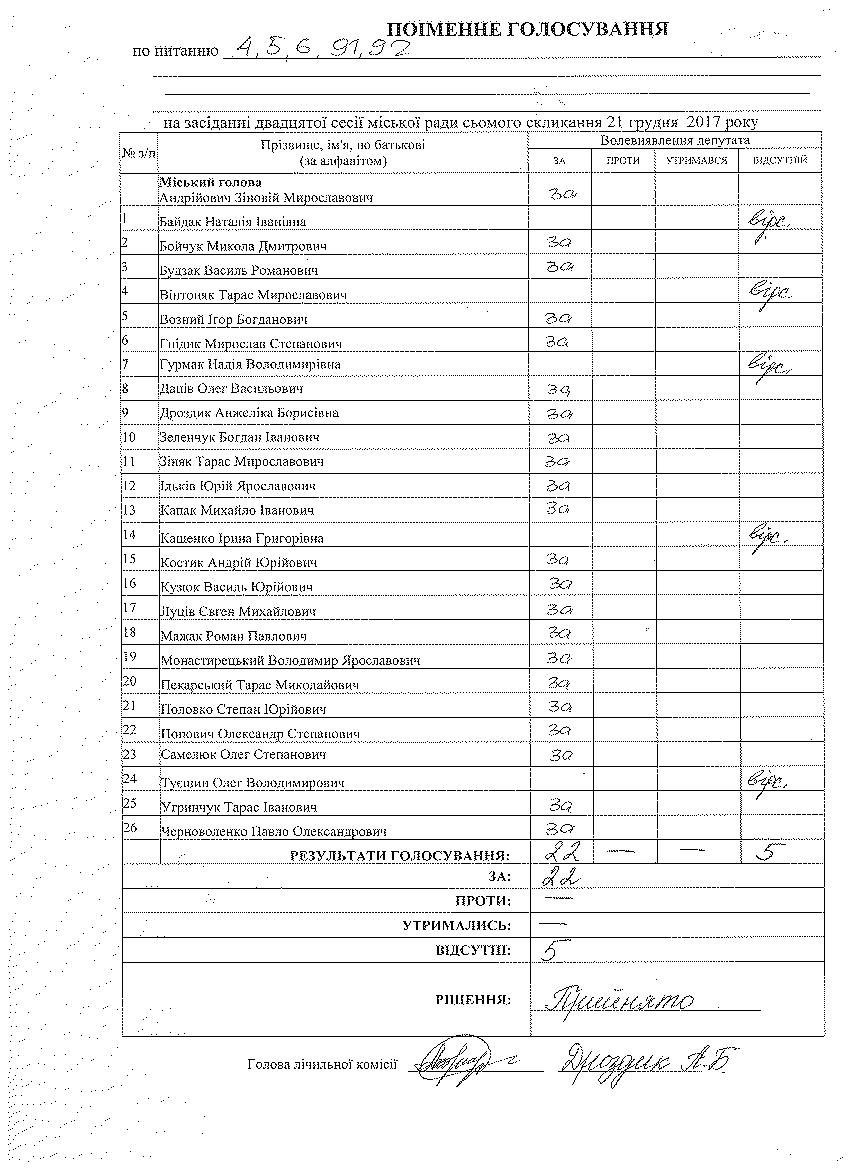 ПОІМЕННЕ ГОЛОСУВАННЯ
по питанню 4, 5, 6, 91, 92
на засіданні двадцятої сесії міської ради сьомого скликання 21 грудня 2017 року
№ з/п Прізвище, ім'я, по батькові (за алфавітом) Волевиявлення депутата
ЗА ПРОТИ УТРИМАВСЯ ВІДСУТНІЙ
Міський голова
Андрійович Зіновій Мирославович за
1 Байдак Наталія Іванівна відс.
2 Бойчук Микола Дмитрович за
3 Будзак Василь Романович за
4 Вінтоняк Тарас Мирославович відс.
5 Возний Ігор Богданович за
6 Гнідик Мирослав Степанович за
7 Гурмак Надія Володимирівна відс.
8 Даців Олег Васильович за
9 Дроздик Анжеліка Борисівна за
10 Зеленчук Богдан Іванович за
11 Зіняк Тарас Мирославович за
12 Ільків Юрій Ярославович за
13 Капак Михайло Іванович за
14 Кащенко Ірина Григорівна відс.
15 Костик Андрій Юрійович за
16 Кузюк Василь Юрійович за
17 Луців Євген Михайлович за
18 Мажак Роман Павлович за
19 Монастирецький Володимир Ярославович за
20 Пекарський Тарас Миколайович за
21 Половко Степан Юрійович за
22 Попович Олександр Степанович за
23 Самелюк Олег Степанович за
24 Туєшин Олег Володимирович відс.
25 Угринчук Тарас Іванович за
26 Черноволенко Павло Олександрович за
РЕЗУЛЬТАТИ ГОЛОСУВАННЯ: 22 — — 5
ЗА: 22
ПРОТИ: —
УТРИМАЛИСЬ: —
ВІДСУТНІ: 5
РІШЕННЯ: Прийнято
Голова лічильної комісії Дроздик А.Б